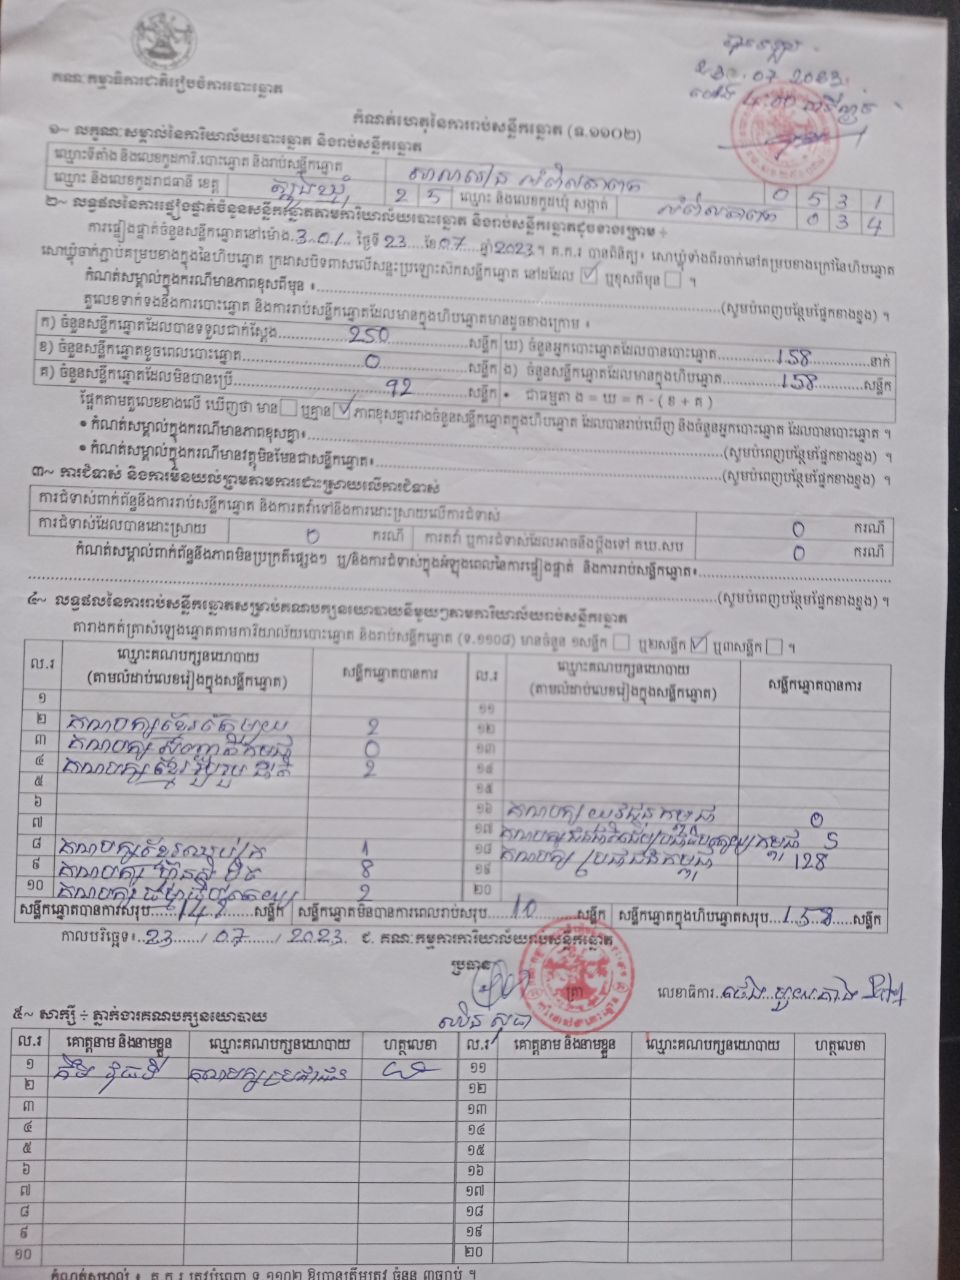 គណៈកម្មាធិការជាតិរៀបចំការបោះឆ្នោត
២៣.07 2023
កំណត់ហេតុនៃការរាប់សន្លឹកឆ្នោត (ទ.១១០២)
១~ លក្ខណៈសម្គាល់នៃការិយាល័យបោះឆ្នោត និងរាប់សន្លឹកឆ្នោត
ឈ្មោះទីតាំង និងលេខកូដការិ.បោះឆ្នោត និងរាប់សន្លឹកឆ្នោត 0 5 3 1
ឈ្មោះ និងលេខកូដរាជធានី ខេត្ត ត្បូងឃ្មុំ 2 5 ឈ្មោះ និងលេខកូដឃុំ សង្កាត់ 0 3 4
២~ លទ្ធផលនៃការផ្ទៀងផ្ទាត់ចំនួនសន្លឹកឆ្នោតតាមការិយាល័យបោះឆ្នោត និងរាប់សន្លឹកឆ្នោតដូចខាងក្រោម ÷
ការផ្ទៀងផ្ទាត់ចំនួនសន្លឹកឆ្នោតនៅម៉ោង.3.01.. ថ្ងៃទី 23 ....ខែ 07 ....ឆ្នាំ 2023 ។ គ.ក.រ បានពិនិត្យ៖ សោឃ្មុំទាំងពីរចាក់នៅគម្របខាងក្រៅនៃហិបឆ្នោត
សោឃ្មុំចាក់ភ្ជាប់គម្របខាងក្នុងនៃហិបឆ្នោត ក្រដាសបិទពាសលើសន្ទះប្រឡោះស៊កសន្លឹកឆ្នោត នៅដដែល ☑ ឬខុសពីមុន ☐ ។
កំណត់សម្គាល់ក្នុងករណីមានភាពខុសពីមុន ៖ (សូមបំពេញបន្ថែមផ្នែកខាងខ្នង) ។
តួលេខទាក់ទងនឹងការបោះឆ្នោត និងការរាប់សន្លឹកឆ្នោតដែលមានក្នុងហិបឆ្នោតមានដូចខាងក្រោម ៖
ក) ចំនួនសន្លឹកឆ្នោតដែលបានទទួលជាក់ស្តែង 250 សន្លឹក ឃ) ចំនួនអ្នកបោះឆ្នោតដែលបានបោះឆ្នោត 158 នាក់
ខ) ចំនួនសន្លឹកឆ្នោតខូចពេលបោះឆ្នោត 0 សន្លឹក ង) ចំនួនសន្លឹកឆ្នោតដែលមានក្នុងហិបឆ្នោត 158 សន្លឹក
គ) ចំនួនសន្លឹកឆ្នោតដែលមិនបានប្រើ 92 សន្លឹក • ជាធម្មតា ង = ឃ = ក - ( ខ + គ )
ផ្អែកតាមតួលេខខាងលើ ឃើញថា មាន ☐ ឬគ្មាន ☑ ភាពខុសគ្នារវាងចំនួនសន្លឹកឆ្នោតក្នុងហិបឆ្នោត ដែលបានរាប់ឃើញ និងចំនួនអ្នកបោះឆ្នោត ដែលបានបោះឆ្នោត ។
• កំណត់សម្គាល់ក្នុងករណីមានភាពខុសគ្នា៖ (សូមបំពេញបន្ថែមផ្នែកខាងខ្នង) ។
• កំណត់សម្គាល់ក្នុងករណីមានវត្ថុមិនមែនជាសន្លឹកឆ្នោត៖ (សូមបំពេញបន្ថែមផ្នែកខាងខ្នង) ។
៣~ ការជំទាស់ និងការមិនយល់ព្រមតាមការដោះស្រាយលើការជំទាស់
ការជំទាស់ពាក់ព័ន្ធនឹងការរាប់សន្លឹកឆ្នោត និងការតវ៉ាទៅនឹងការដោះស្រាយលើការជំទាស់ 0 ករណី
ការជំទាស់ដែលបានដោះស្រាយ 0 ករណី ការតវ៉ា ឬការជំទាស់ដែលអាចនឹងប្តឹងទៅ គឃ.សប 0 ករណី
កំណត់សម្គាល់ពាក់ព័ន្ធនឹងភាពមិនប្រក្រតីផ្សេងៗ ឬ/និងការជំទាស់ក្នុងអំឡុងពេលនៃការផ្ទៀងផ្ទាត់ និងការរាប់សន្លឹកឆ្នោត៖
(សូមបំពេញបន្ថែមផ្នែកខាងខ្នង) ។
៤~ លទ្ធផលនៃការរាប់សន្លឹកឆ្នោតសម្រាប់គណបក្សនយោបាយនីមួយៗតាមការិយាល័យរាប់សន្លឹកឆ្នោត
តារាងកត់ត្រាសំឡេងឆ្នោតតាមការិយាល័យបោះឆ្នោត និងរាប់សន្លឹកឆ្នោត (ទ.១១០៨) មានចំនួន ១សន្លឹក ☐ ឬ២សន្លឹក ☑ ឬ៣សន្លឹក ☐ ។
ល.រ ឈ្មោះគណបក្សនយោបាយ (តាមលំដាប់លេខរៀងក្នុងសន្លឹកឆ្នោត) សន្លឹកឆ្នោតបានការ ល.រ ឈ្មោះគណបក្សនយោបាយ (តាមលំដាប់លេខរៀងក្នុងសន្លឹកឆ្នោត) សន្លឹកឆ្នោតបានការ
១ ១១
២ គណបក្ស 2 ១២
៣ គណបក្ស 0 ១៣
៤ គណបក្សខ្មែររួបរួមជាតិ 2 ១៤
៥ ១៥
៦ ១៦ គណបក្ស កម្ពុជា 0
៧ ១៧ គណបក្ស កម្ពុជា 5
៨ គណបក្ស 1 ១៨ គណបក្សប្រជាជនកម្ពុជា 128
៩ គណបក្សហ៊្វុនស៊ិនប៉ិច 8 ១៩
១០ គណបក្ស 2 ២០
សន្លឹកឆ្នោតបានការសរុប 148 សន្លឹក សន្លឹកឆ្នោតមិនបានការពេលរាប់សរុប 10 សន្លឹក សន្លឹកឆ្នោតក្នុងហិបឆ្នោតសរុប 158 សន្លឹក
កាលបរិច្ឆេទ៖ 23 / 07 / 2023. ជ. គណៈកម្មការការិយាល័យរាប់សន្លឹកឆ្នោត
ប្រធាន ត្រា លេខាធិការ
៥~ សាក្សី ÷ ភ្នាក់ងារគណបក្សនយោបាយ
ល.រ គោត្តនាម និងនាមខ្លួន ឈ្មោះគណបក្សនយោបាយ ហត្ថលេខា ល.រ គោត្តនាម និងនាមខ្លួន ឈ្មោះគណបក្សនយោបាយ ហត្ថលេខា
១ គណបក្សប្រជាជន ១១
២ ១២
៣ ១៣
៤ ១៤
៥ ១៥
៦ ១៦
៧ ១៧
៨ ១៨
៩ ១៩
១០ ២០
កំណត់សម្គាល់ ៖ គ.ក.រ ត្រូវបំពេញ ទ.១១០២ ឱ្យបានត្រឹមត្រូវ ចំនួន ៣ច្បាប់ ។